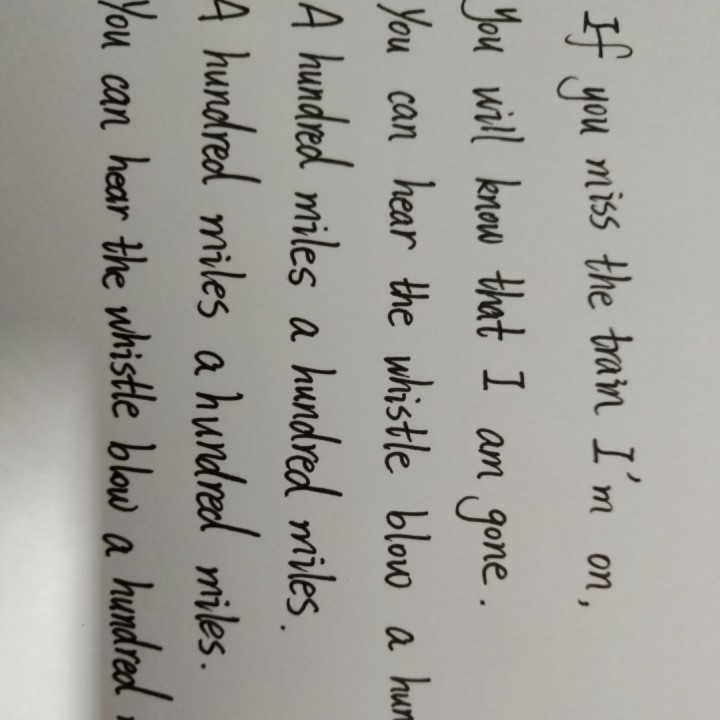 If you miss the train I'm on,
You will know that I am gone.
You can hear the whistle blow a
A hundred miles a hundred miles.
A hundred miles a hundred miles.
You can hear the whistle blow a hundred